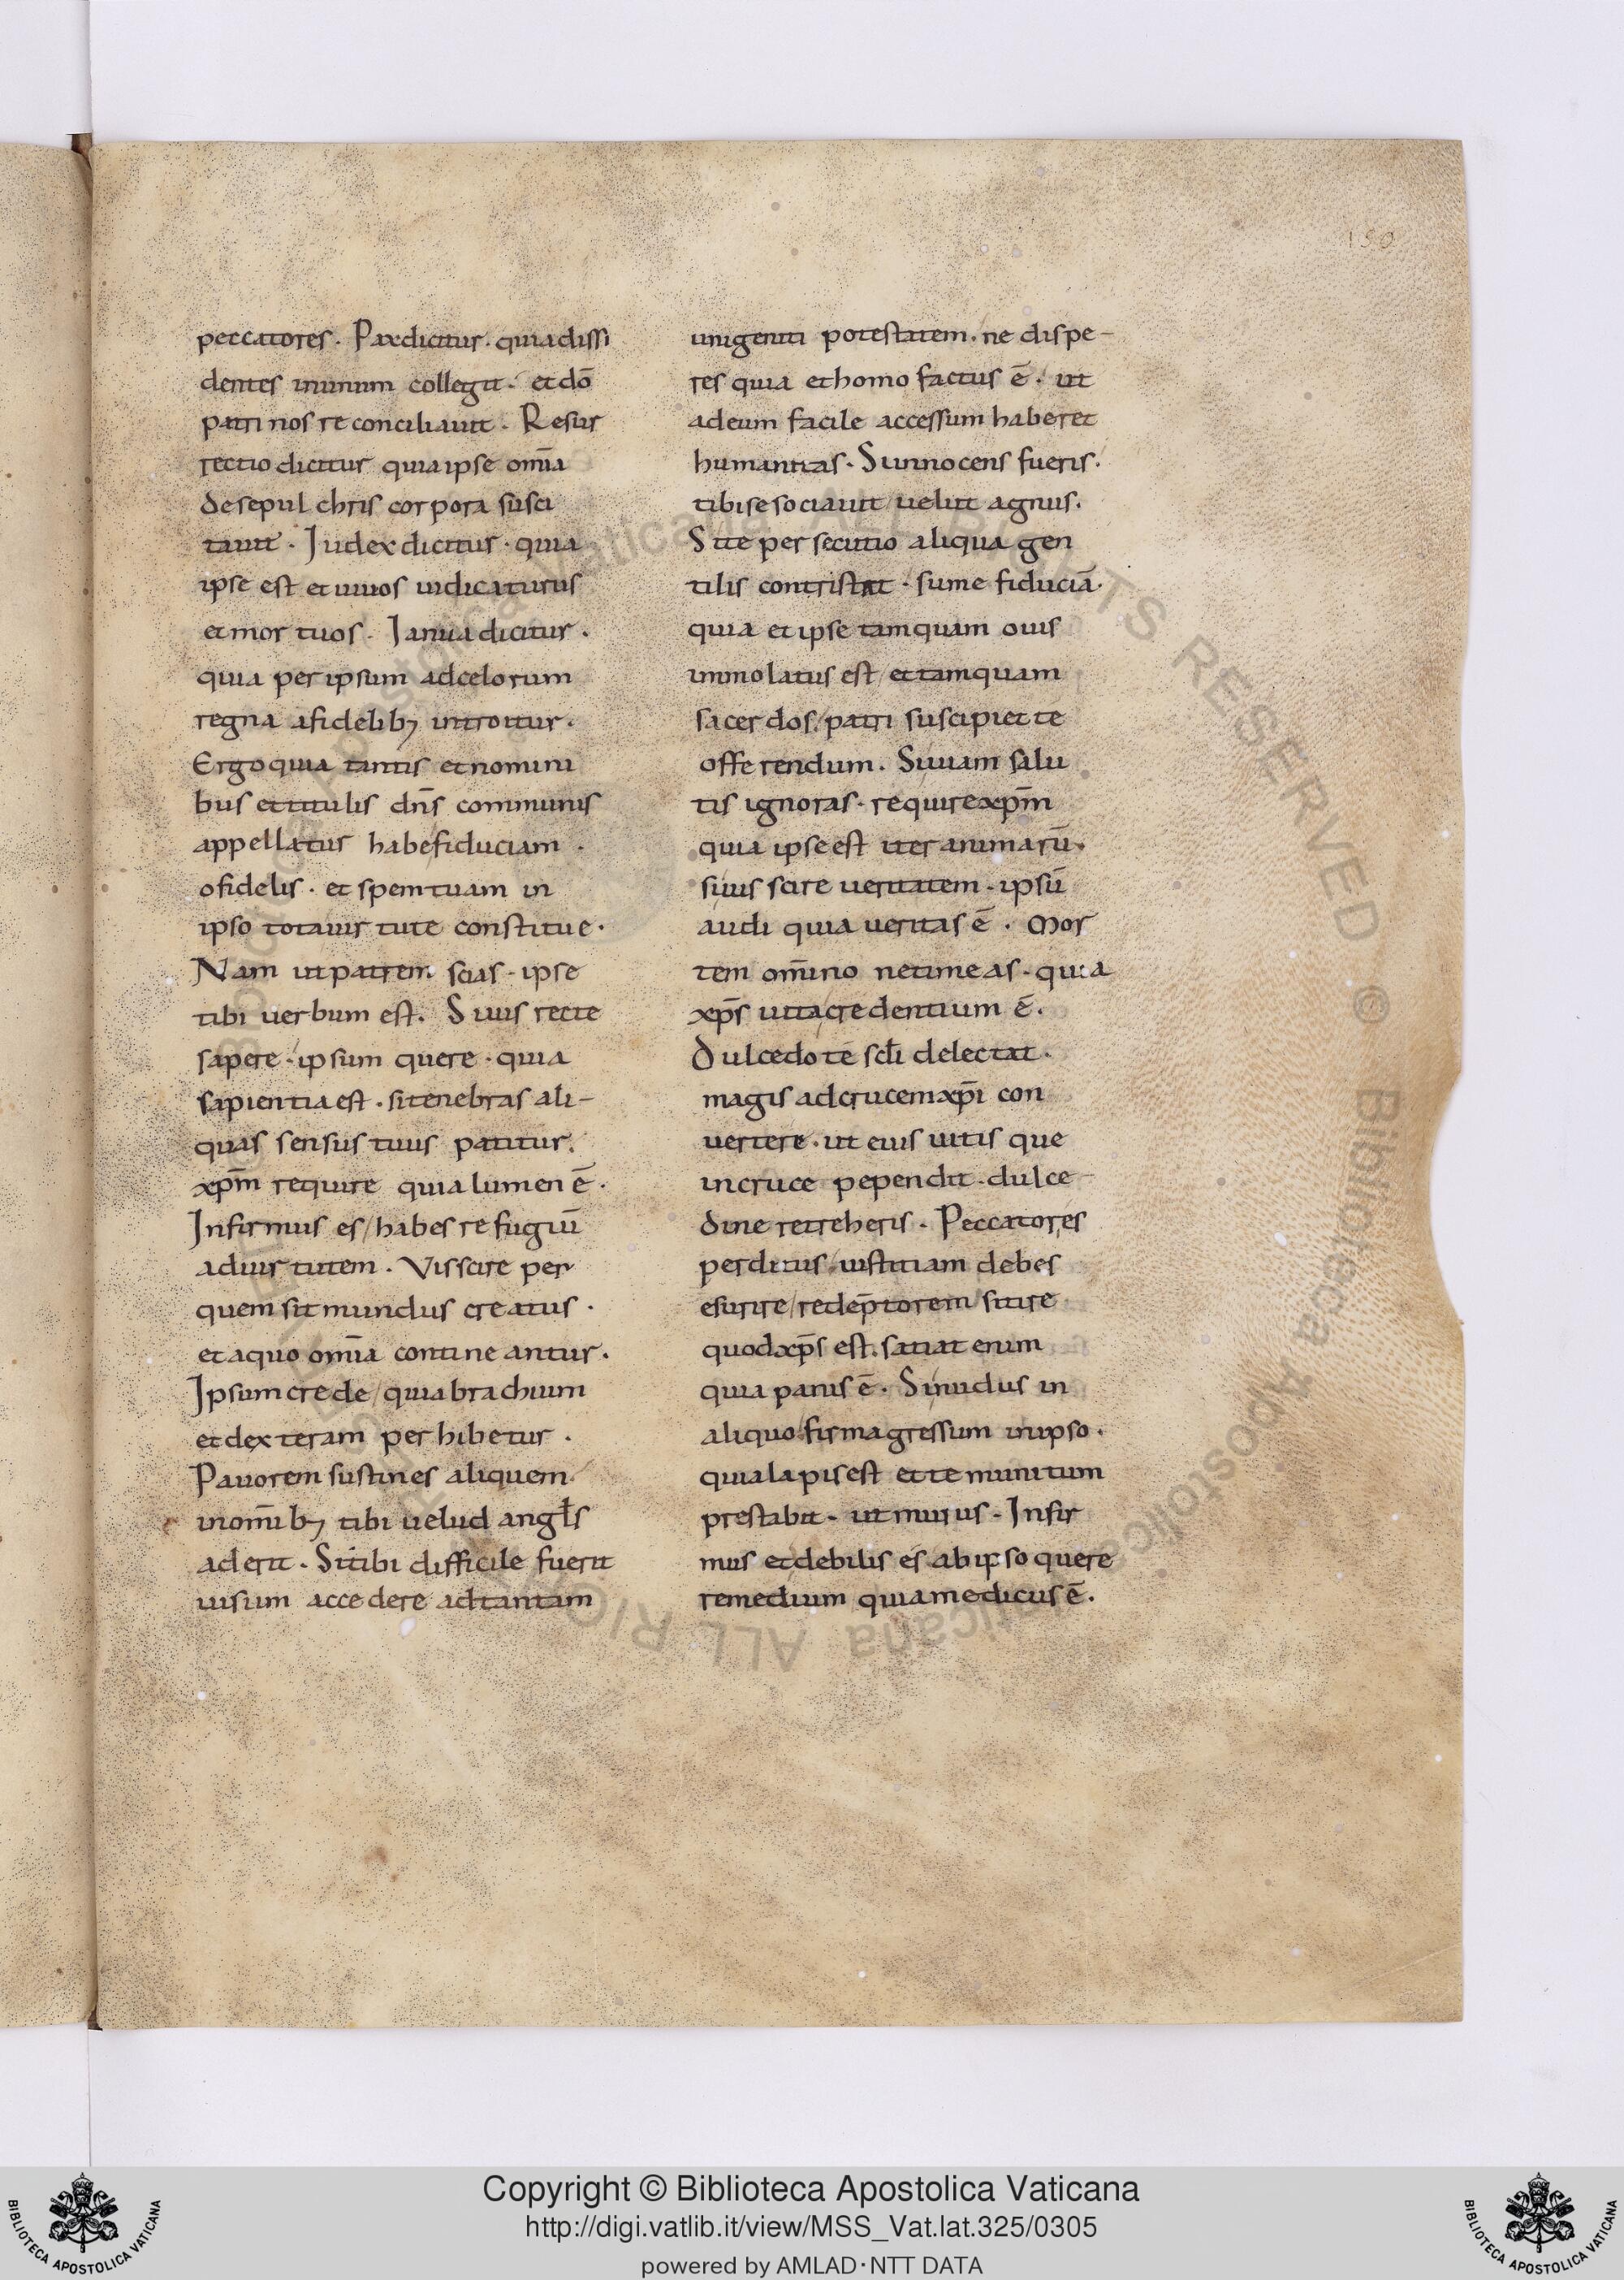 150
peccatores. Pax dicitur. quia dissi
dentes in unum collegit. et dō
patri nos reconciliauit. Resur
rectio dicitur quia ipse om̄ia
de sepulchris corpora susci
tauit. Judex dicitur. quia
ipse est et uiuos iudicaturus
et mortuos. Janua dicitur.
quia per ipsum ad celorum
regna a fidelibꝫ introitur.
Ergo quia tantis et nomini
bus et titulis dn̄s communis
appellatur habe fiduciam.
o fidelis. et spem tuam in
ipso tota uirtute constitue.
Nam ut patrem scias. ipse
tibi uerbum est. Si uis recte
sapere. ipsum quere. quia
sapientia est. si tenebras ali-
quas sensus tuus patitur.
xp̄m require quia lumen ē.
Infirmus es/ habes refugiū
ad uirtutem. Vis scire per
quem sit mundus creatus.
et a quo om̄ia contineantur.
Ipsum crede/ quia brachium
et dexteram perhibetur.
Pauorem sustines aliquem
in om̄ibꝫ tibi uelud angl̄s
aderit. Si tibi difficile fuerit
uisum accedere ad tantam
unigeniti potestatem. ne dispe-
res quia et homo factus ē. ut
ad eum facile accessum haberet
humanitas. Si innocens fueris.
tibi se sociauit/ uelut agnus.
Si te persecutio aliqua gen
tilis contristat. sume fiduciā.
quia et ipse tamquam ouis
immolatus est/ et tamquam
sacerdos/ patri suscipiet te
offerendum. Si uiam salu
tis ignoras. require xp̄m
quia ipse est iter animarū.
si uis scire ueritatem. ipsū
audi quia ueritas ē. Mor
tem om̄ino ne timeas. quia
xp̄s uita credentium ē.
Dulcedo te scl̄i delectat.
magis ad crucem xp̄i con
uertere. ut eius uitis que
in cruce pependit. dulce-
dine retreheris. Peccatores
perditus/ iustitiam debes
esurire/ redēptorem sitire
quod xp̄s est. satiat enim
quia panis ē. Si nudus in
aliquo/ firma gressum in ipso.
quia lapis est et te munitum
prestabit. ut murus. Infir
mus et debilis es ab ipso quere
remedium quia medicus ē.
Copyright © Biblioteca Apostolica Vaticana
http://digi.vatlib.it/view/MSS_Vat.lat.325/0305
powered by AMLAD・NTT DATA
BIBLIOTECA APOSTOLICA VATICANA
BIBLIOTECA APOSTOLICA VATICANA